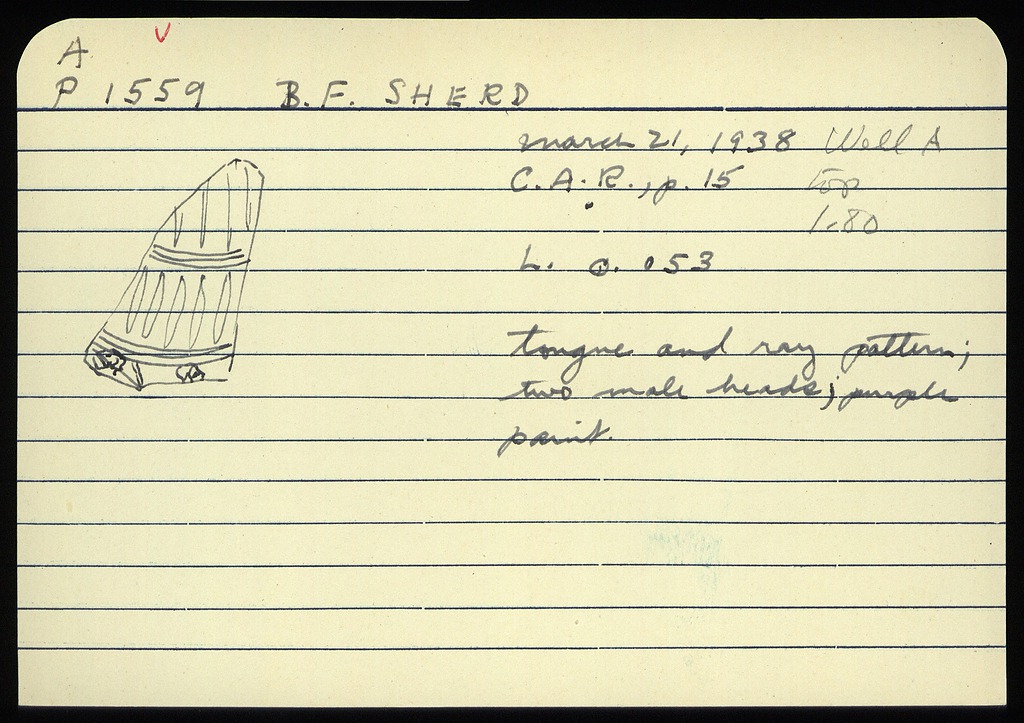 A
P 1559 B.F. SHERD
march 21, 1938 Well A
C.A.R., p. 15 top
1-80
L. 0. 053
tongue and ray pattern;
two male heads; purple
paint.